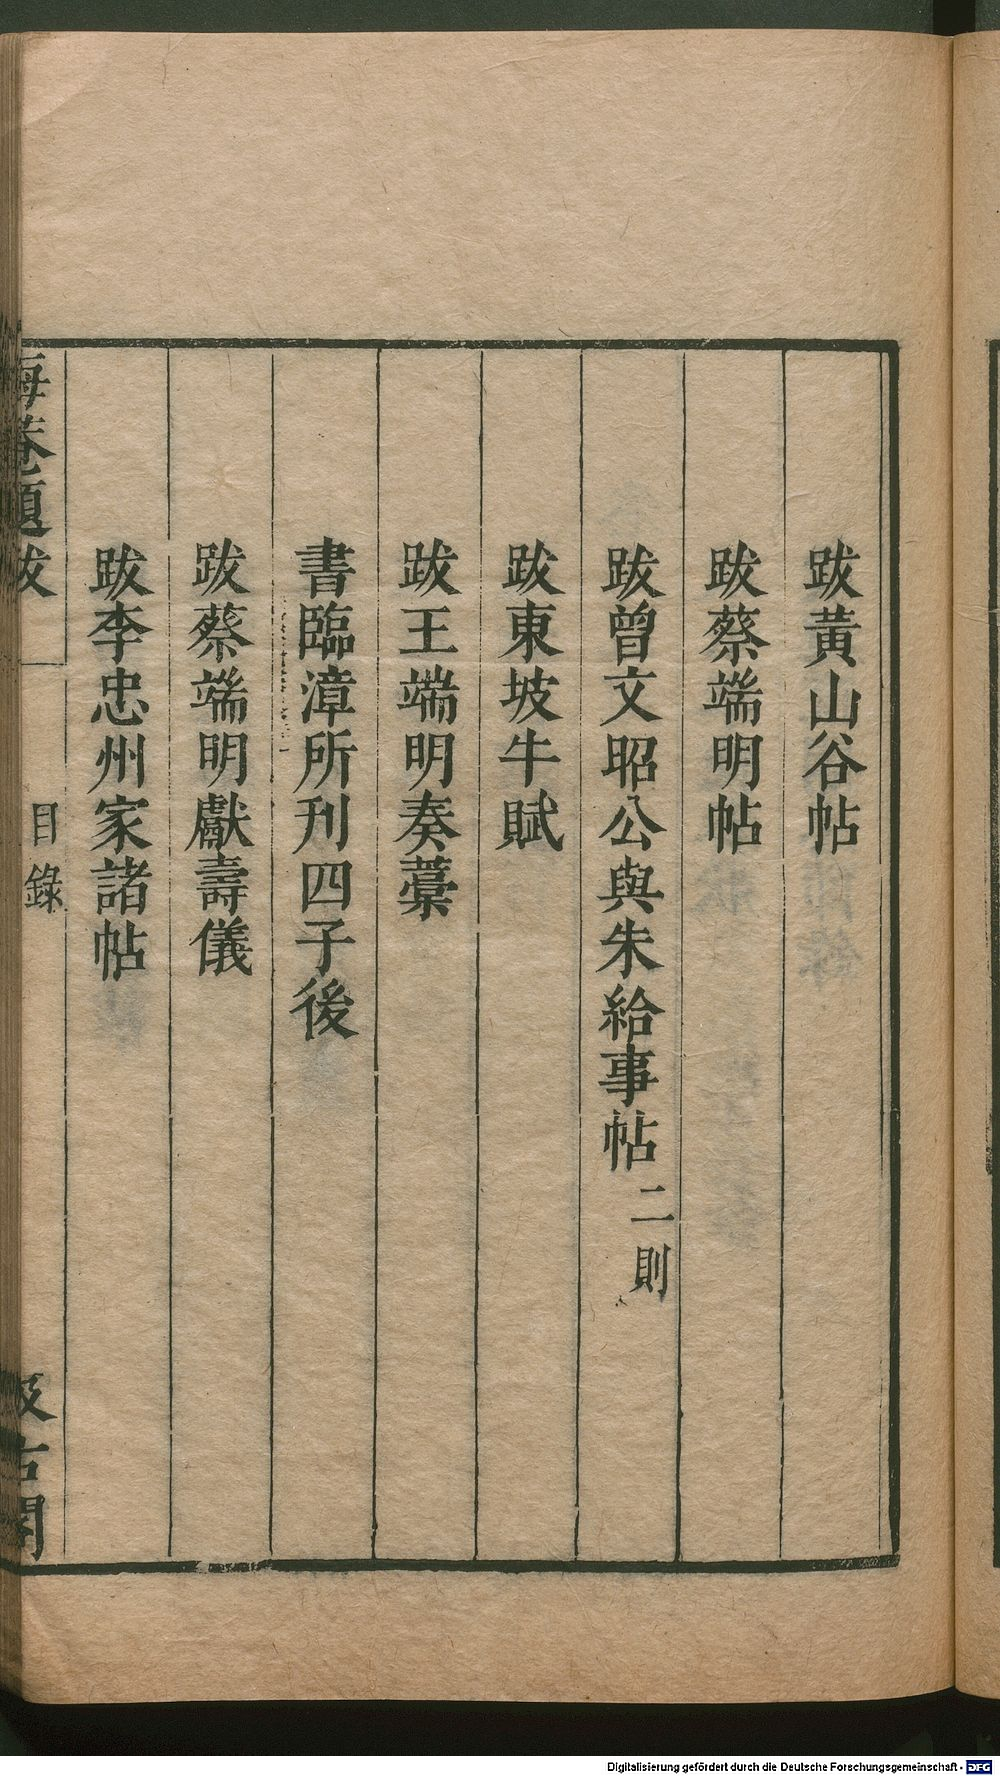 跋黃山谷帖
跋蔡端明帖
跋曾文昭公與朱給事帖二則
跋東坡牛賦
跋王端明奏藁
書臨漳所刋四子後
跋蔡端明獻壽儀
跋李忠州家諸帖
晦菴題跋
目錄
汲古閣
Digitalisierung gefördert durch die Deutsche Forschungsgemeinschaft - DFG